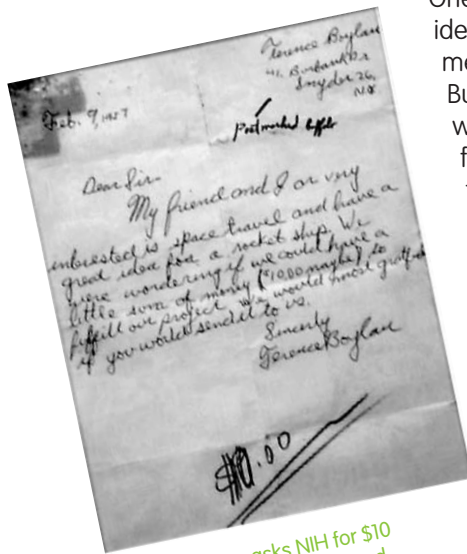 Terence Boylan
41 Burbank Dr
Snyder 26,
N.Y.
Feb. 9, 1957
Postmarked Buffalo
Dear Sir
My friend and I or vny
interested is space travel and have a
great idea for a rocket ship. We
were wondering if we could have a
little sum of money ($10.00 maybe) to
fulfill our project. We would most
if you would send it to us.
Sincerly
Terence Boylan
$10.00
asks NIH for $10
One
ide
me
Bu
w
f